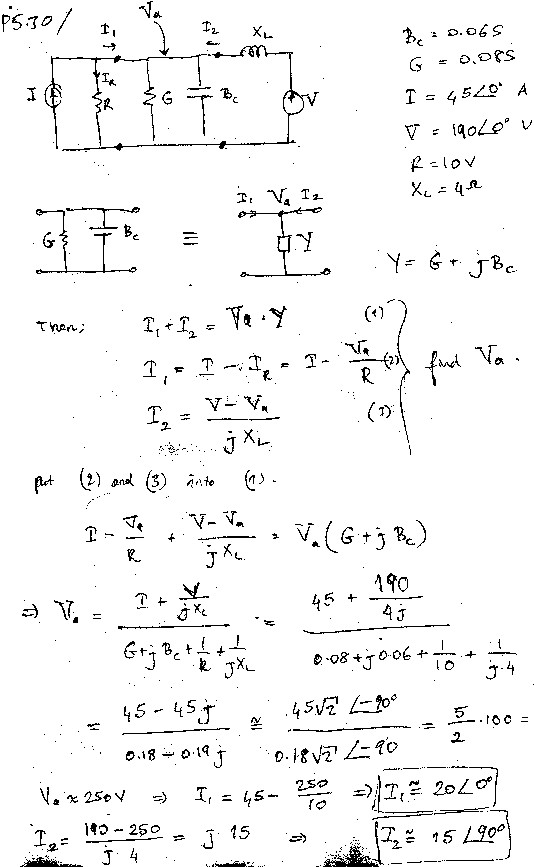 P5.30/
I₁ → Va I₂ ← X_L
I I_R R G B_c V
B_c = 0.06S
G = 0.08S
I = 45∠0° A
V = 190∠0° V
R = 10V
X_L = 4Ω
I₁ Va I₂
G B_c ≡ Y
Y = G + jB_c
Then; I₁ + I₂ = Va · Y (1)
I₁ = I - I_R = I - Va/R (2) find Va.
I₂ = (V - Va)/(jX_L) (3)
put (2) and (3) into (1).
I - Va/R + (V - Va)/(jX_L) = Va(G + jB_c)
⇒ Va = (I + V/(jX_L))/(G + jB_c + 1/R + 1/(jX_L)) = (45 + 190/(4j))/(0.08 + j0.06 + 1/10 + 1/(j·4))
= (45 - 45j)/(0.18 - 0.19j) ≅ (45√2 ∠-90°)/(0.18√2 ∠-90) = 5/2 · 100 =
Va ≈ 250V ⇒ I₁ = 45 - 250/10 ⇒ I₁ ≅ 20∠0°
I₂ = (190 - 250)/(j·4) = j 15 ⇒ I₂ ≅ 15∠90°